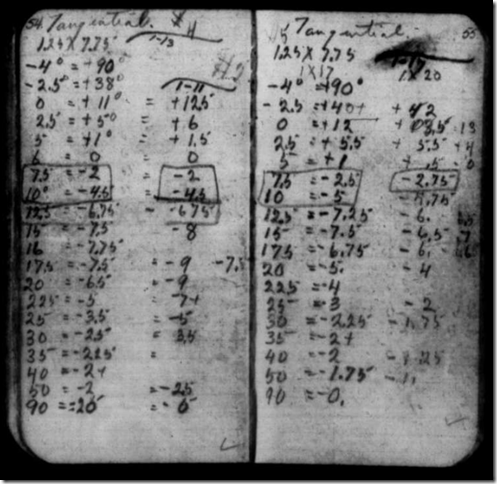 54 Tangential. #4
1.25 X 7.75
1-13
-4° = +90°
-2.5° = +38° 1-11
0 = +11° = +12.5
2.5 = +5° = +6
5 = +1° = +1.5
6 = 0 = 0
7.5 = -2 -2
10° = -4.5 -4.5
12.5 = -6.75 - -6.75
15 = -7.5 -8
16 - 7.75
17.5 = -7.5 = -9 -7.5
20 = -6.5 = -9
22.5 = -5 = -7+
25 = -3.5 = -5
30 = -2.5 = 3.5
35 = -2.25 =
40 = -2+
50 = -2 = -2.5
90 = = 2.5 = -0
#5 Tangential. 55
1.25 X 7.75
1X17 1X20
-4° = +90°
-2.5 = +40+ +42
0 = +12 13
2.5 = +5.5 + 5.5 +4
5 = +1 + .5 - 0
7.5 = -2.5 -2.75
10 = -5
12.5 = -7.25 - 6.
15 = -7.5 - 6.5
17.5 = -6.75 - 6.
20 = -5. - 4
22.5 = -4
25 = 3 - 2
30 = -2.25 - 1.75
35 = -2+
40 = -2 - 1.25
50 = -1.75 - 1.
90 = -0.